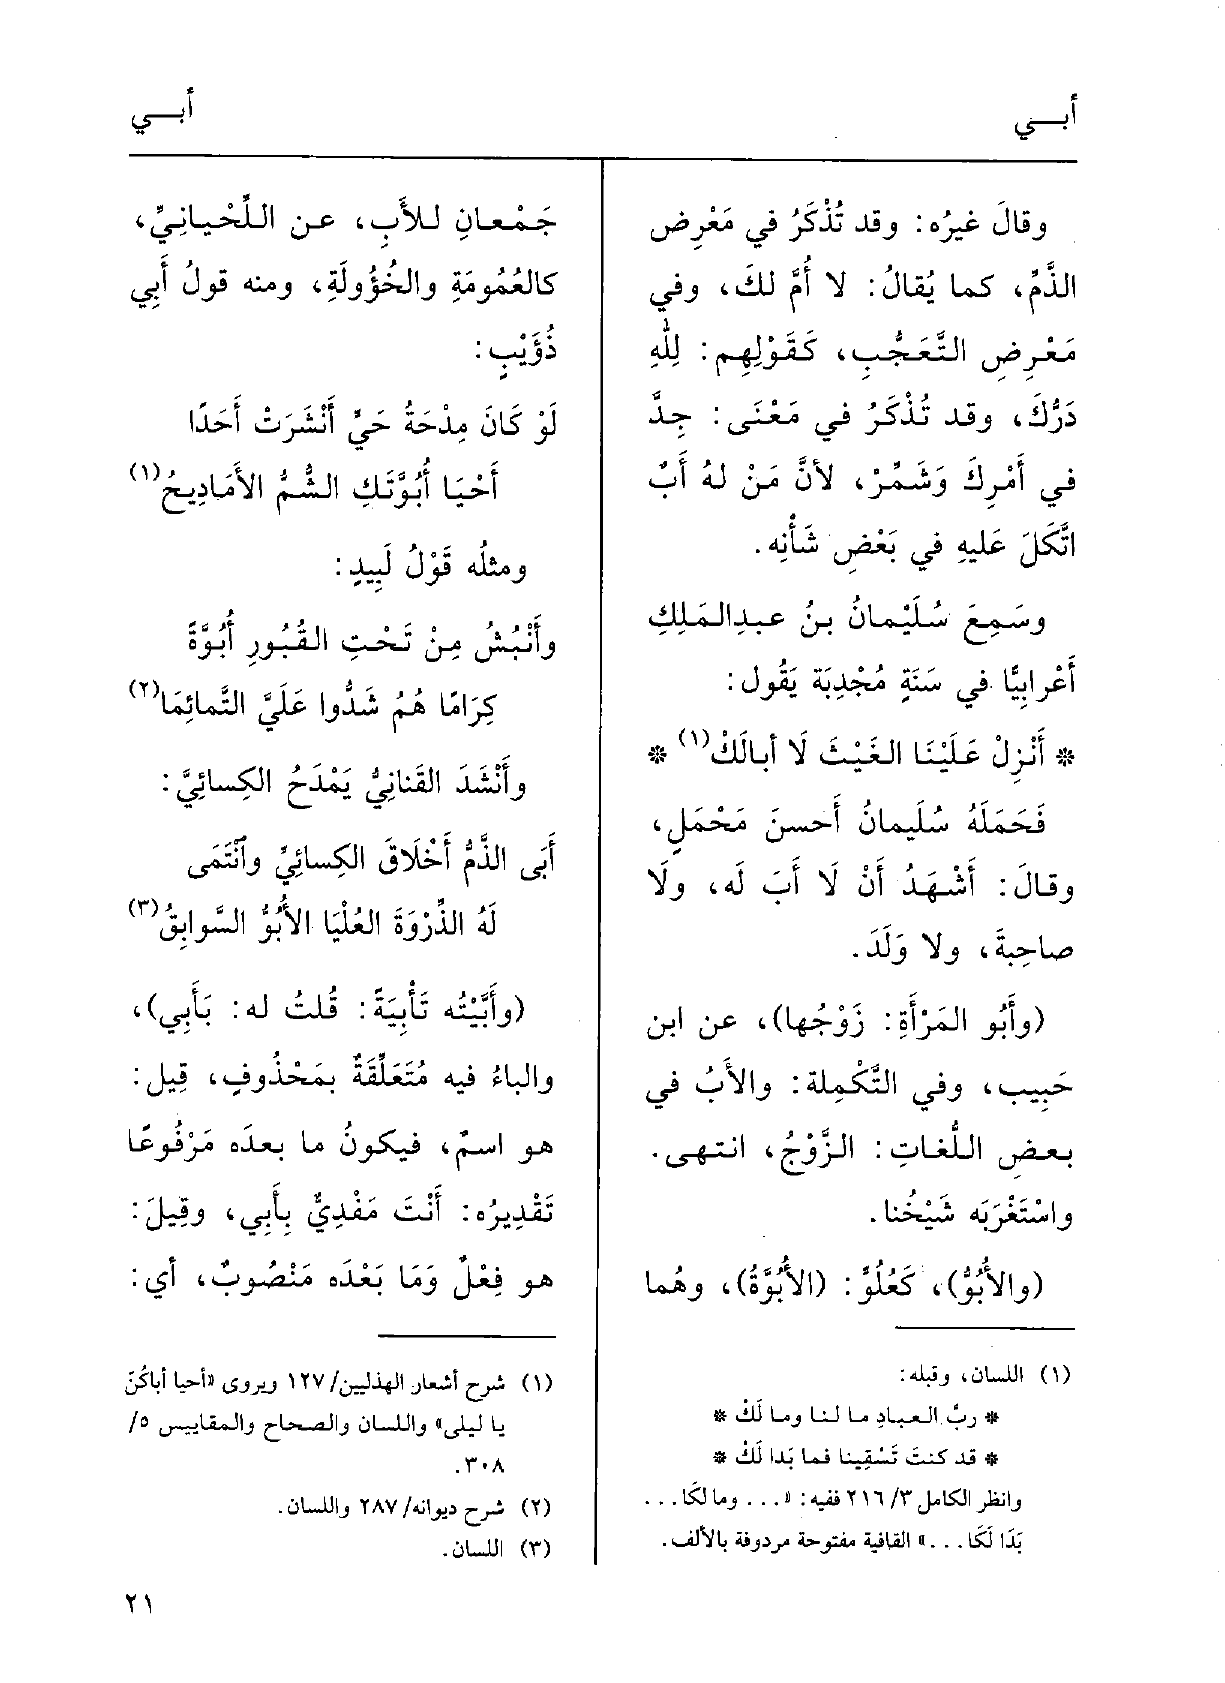 أبـــي
أبـــي
وقالَ غيرُه: وقد تُذْكَرُ في مَعْرِض
الذَّمِّ، كما يُقالُ: لا أُمَّ لكَ، وفي
مَعْرِضِ التَّعَجُّبِ، كَقَوْلِهِم: لِلّٰهِ
دَرُّكَ، وقد تُذْكَرُ في مَعْنَى: جِدَّ
في أَمْرِكَ وَشَمِّرْ، لأنَّ مَنْ لهُ أَبٌ
اتَّكَلَ عَليهِ في بَعْضِ شَأْنِه.
وسَمِعَ سُلَيْمانُ بنُ عبدِالمَلِكِ
أَعْرابِيًّا في سَنَةٍ مُجْدِبَة يَقُول:
* أَنْزِلْ عَلَيْنَا الغَيْثَ لَا أبالَكْ(١) *
فَحَمَلَهُ سُلَيمانُ أَحسنَ مَحْمَلٍ،
وقالَ: أَشْهَدُ أَنْ لَا أَبَ لَه، ولَا
صاحِبةَ، ولا وَلَدَ.
(وأَبُو المَرْأَةِ: زَوْجُها)، عن ابن
حَبِيب، وفي التَّكْمِلة: والأَبُ في
بعضِ اللُّغاتِ: الزَّوْجُ، انتهى.
واسْتَغْرَبَه شَيْخُنا.
(والأُبُوُّ)، كَعُلُوٍّ: (الأُبُوَّةُ)، وهُما
(١) اللسان، وقبله:
* ربَّ العبادِ ما لنا وما لَكْ *
* قد كنتَ تَسْقِينا فما بَدا لَكْ *
وانظر الكامل ٣/ ٢١٦ ففيه: «... وما لَكَا ...
بَدَا لَكَا ...» القافية مفتوحة مردوفة بالألف.
جَمْعانِ للأَبِ، عن اللِّحْيانِيِّ،
كالعُمُومَةِ والخُؤُولَةِ، ومنه قولُ أَبِي
ذُؤَيْبٍ:
لَوْ كَانَ مِدْحَةُ حَيٍّ أَنْشَرَتْ أَحَدًا
أَحْيَا أُبُوَّتَكِ الشُّمَّ الأمَادِيحُ(١)
ومثلُه قَوْلُ لَبِيدٍ:
وأَنْبُشُ مِنْ تَحْتِ القُبُورِ أُبُوَّةً
كِرَامًا هُمُ شَدُّوا عَلَيَّ التَّمائِمَا(٢)
وأَنْشَدَ القَنانِيُّ يَمْدَحُ الكِسائِيَّ:
أَبَى الذَّمُّ أَخْلَاقَ الكِسائِيِّ وٱنْتَمَى
لَهُ الذِّرْوَةَ العُلْيَا الأُبُوُّ السَّوابِقُ(٣)
(وأَبَّيْتُه تَأْبِيَةً: قُلتُ له: بَأَبِي)،
والباءُ فيه مُتَعَلِّقَةٌ بمَحْذُوفٍ، قِيل:
هو اسمٌ، فيكونُ ما بعدَه مَرْفُوعًا
تَقْدِيرُه: أَنْتَ مَفْدِيٌّ بِأَبِي، وقِيلَ:
هو فِعْلٌ وَمَا بَعْدَه مَنْصُوبٌ، أي:
(١) شرح أشعار الهذليين/ ١٢٧ ويروى «أحيا أباكُنّ
يا ليلى» واللسان والصحاح والمقاييس ٥/
٣٠٨.
(٢) شرح ديوانه/ ٢٨٧ واللسان.
(٣) اللسان.
٢١